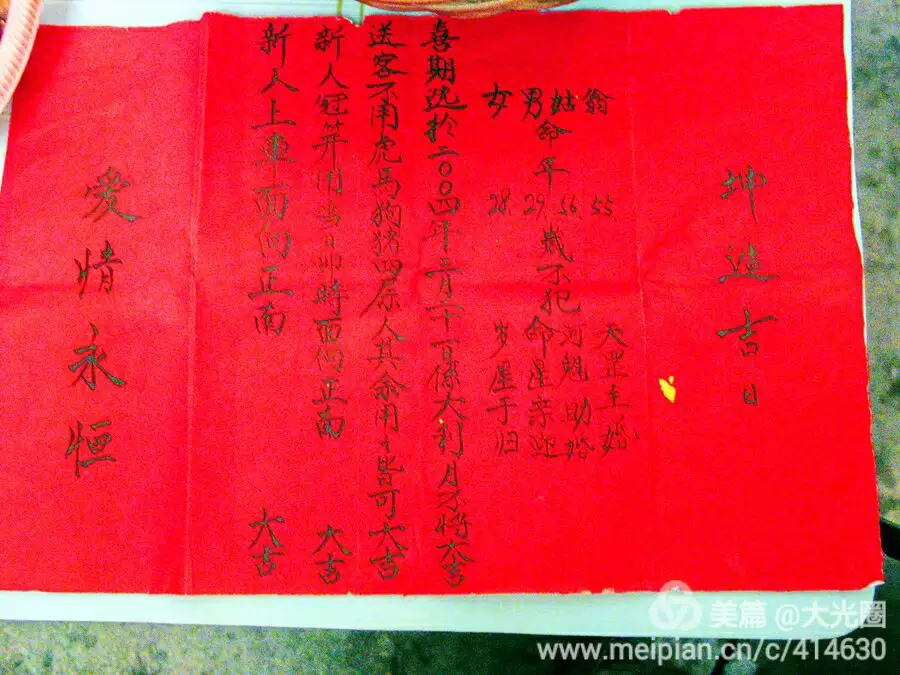 坤造吉日
翁 55 天罡主婚
姑 56 河魁助婚
男命年 29 岁不犯命星亲迎
女 28 岁星于归
喜期选於二〇〇四年二月二十一日係大利月不将大吉
送客不用虎马狗猪四属人其余用之皆可大吉
新人冠笄用当日卯時面向正南 大吉
新人上車面向正南 大吉
爱情永恒
美篇 @大光圈
www.meipian.cn/c/414630